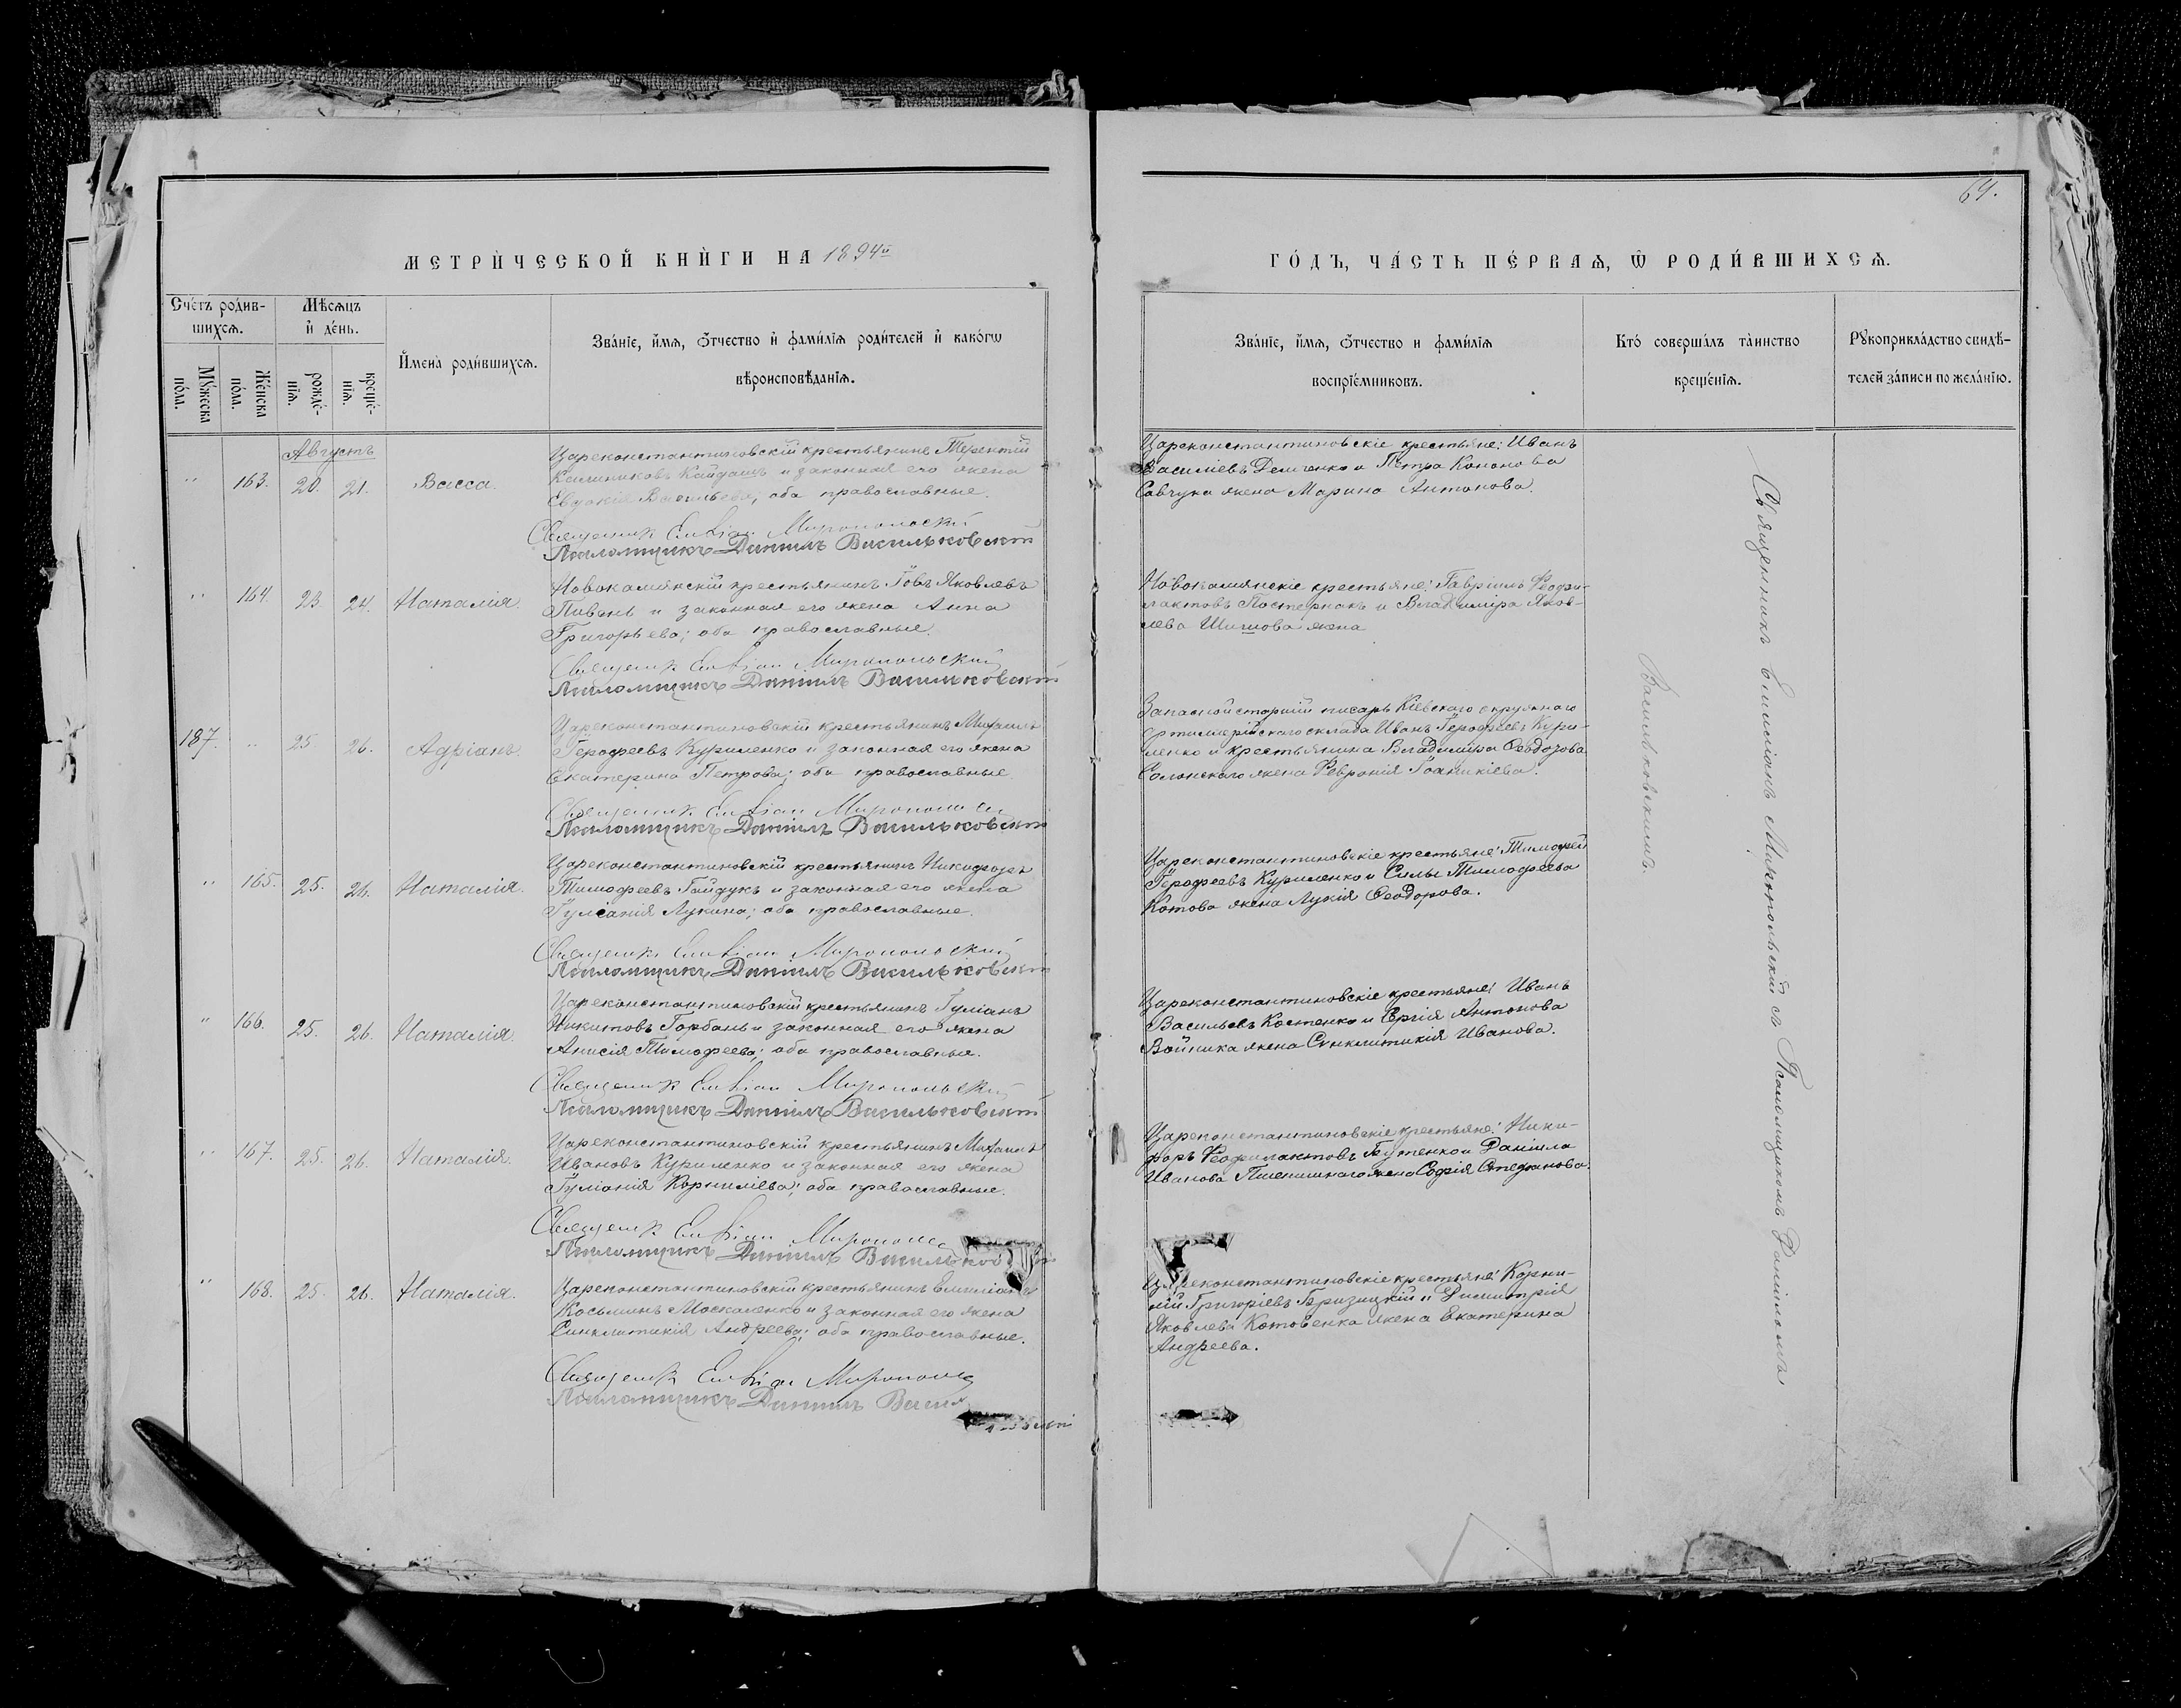 64.
МЕТРИ́ЧЕСКОЙ КНИ́ГИ НА 1894й
ГО́ДЪ, ЧА́СТЬ ПЕ́РВАѦ, Ѡ҆ РОДИ́ВШИХСѦ.
Сче́тъ роди́в-
шихсѧ.
Мꙋ́жеска по́ла.
Же́нска по́ла.
Мѣ́сѧцъ
и҆ де́нь.
рожде́-
нїѧ.
креще́-
нїѧ.
И҆мена̀ роди́вшихсѧ.
Зва́нїе, и҆́мѧ, ѻ҆́тчество и҆ фами́лїѧ роди́телей и҆ како́гѡ
вѣроисповѣ́данїѧ.
Зва́нїе, и҆́мѧ, ѻ҆́тчество и фами́лїѧ
воспрїе́мниковъ.
Кто̀ соверша́лъ та̀инство
креще́нїѧ.
Рꙋкоприкла́дство свидѣ́-
телей за́писи по жела́нїю.
Августъ
" 163. 20. 21. Васса.
Цареконстантиновскій крестьянинъ Терентій
Калиниковъ Кайдашъ и законная его жена
Евдокія Васильева, оба православные.
Священник Емиліан Миропольский
Псаломщикъ Даніилъ Васильковскій
Цареконстантиновскіе крестьяне: Иванъ
Василіевъ Демченко и Петра Кононова
Савчука жена Марина Антонова.
" 164. 23. 24. Наталія.
Новокамянскій крестьянинъ Іовъ Яковлевъ
Пивень и законная его жена Анна
Григорьева; оба православные.
Священник Емиліан Миропольский
Псаломщикъ Даніилъ Васильковскій
Новокамянскіе крестьяне: Гавріилъ Феофи-
лактовъ Постернакъ и Владиміра Яков-
лева Шишова жена
187. " 25 26. Адріанъ.
Цареконстантиновскій крестьянинъ Михаилъ
Герофеевъ Куриленко и законная его жена
Екатерина Петрова; оба православные.
Священник Емиліан Миропольский
Псаломщикъ Даніилъ Васильковскій
Запасной старшій писарь Кіевскаго окружнаго
артиллерійскаго склада Иванъ Герофеевъ Кури-
ленко и крестьянина Владиміра Феодорова
Солонскаго жена Февронія Іоаникіева.
" 165. 25. 26. Наталія.
Цареконстантиновскій крестьянинъ Никифоръ
Тимофеевъ Гайдукъ и законная его жена
Іуліанія Лукина; оба православные.
Священник Емиліан Миропольский
Псаломщикъ Даніилъ Васильковскій
Цареконстантиновскіе крестьяне: Тимофей
Герофеевъ Куриленко и Силы Тимофеева
Котова жена Лукія Феодорова.
" 166. 25. 26. Наталія.
Цареконстантиновскій крестьянинъ Іуліанъ
Никитовъ Горбань и законная его жена
Анисія Тимофеева; оба православные.
Священник Емиліан Миропольский
Псаломщикъ Даніилъ Васильковскій
Цареконстантиновскіе крестьяне: Иванъ
Васильевъ Костенко и Сергія Антонова
Войника жена Синклитикія Иванова.
" 167. 25. 26. Наталія.
Цареконстантиновскій крестьянинъ Михаилъ
Ивановъ Куриленко и законная его жена
Іуліанія Корниліева; оба православные.
Священник Емиліан Миропольс
Псаломщикъ Даніилъ Васильковскій
Цареконстантиновскіе крестьяне: Ники-
форъ Феофилактовъ Бутенко и Даніила
Иванова Пшеничнаго жена Софія Стефанова.
" 168. 25. 26. Наталія.
Цареконстантиновскій крестьянинъ Емиліанъ
Косьминъ Москаленко и законная его жена
Синклитикія Андреева; оба православные.
Священник Емиліан Миропольс
Псаломщикъ Даніилъ Васильковскій
Цареконстантиновскіе крестьяне: Корни-
лій Григоріевъ Бризицкій и Димитрія
Яковлева Котовенка жена Екатерина
Андреева.
Священникъ Емиліанъ Миропольскій съ Псаломщикомъ Даніиломъ
Васильковскимъ.